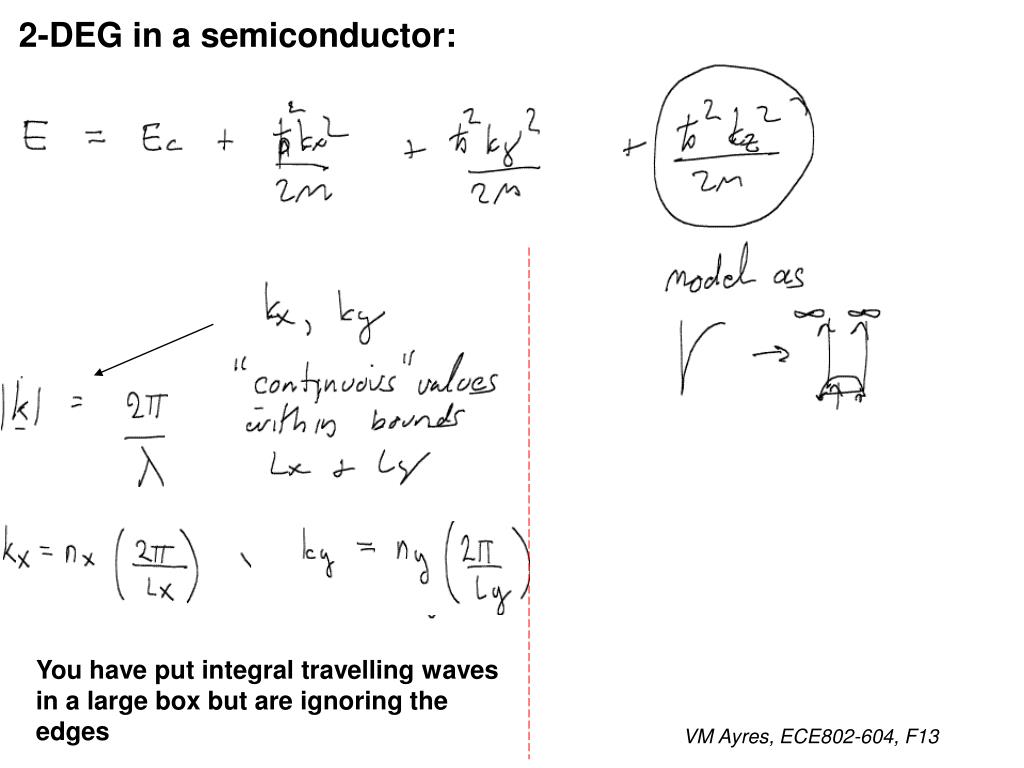 2-DEG in a semiconductor:
E = Ec + ħ²kx²/2m + ħ²ky²/2m + ħ²kz²/2m
model as
∞ ∞
V →
kx, ky
"continuous" values
within bounds
Lx + Ly
|k| = 2π/λ
kx = nx (2π/Lx), ky = ny (2π/Ly)
You have put integral travelling waves
in a large box but are ignoring the
edges
VM Ayres, ECE802-604, F13